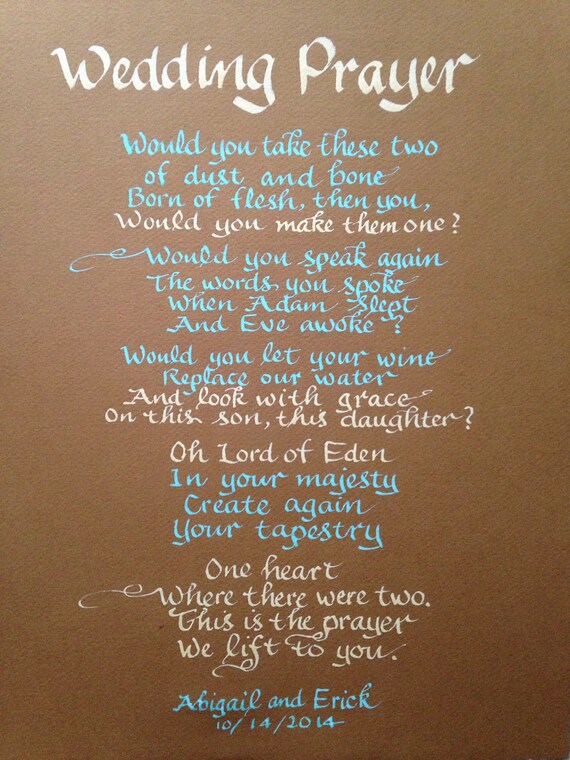 Wedding Prayer
Would you take these two
of dust and bone
Born of flesh, then you,
Would you make them one?
Would you speak again
The words you spoke
When Adam slept
And Eve awoke?
Would you let your wine
Replace our water
And look with grace
On this son, this daughter?
Oh Lord of Eden
In your majesty
Create again
Your tapestry
One heart
Where there were two.
This is the prayer
We lift to you.
Abigail and Erick
10/14/2014